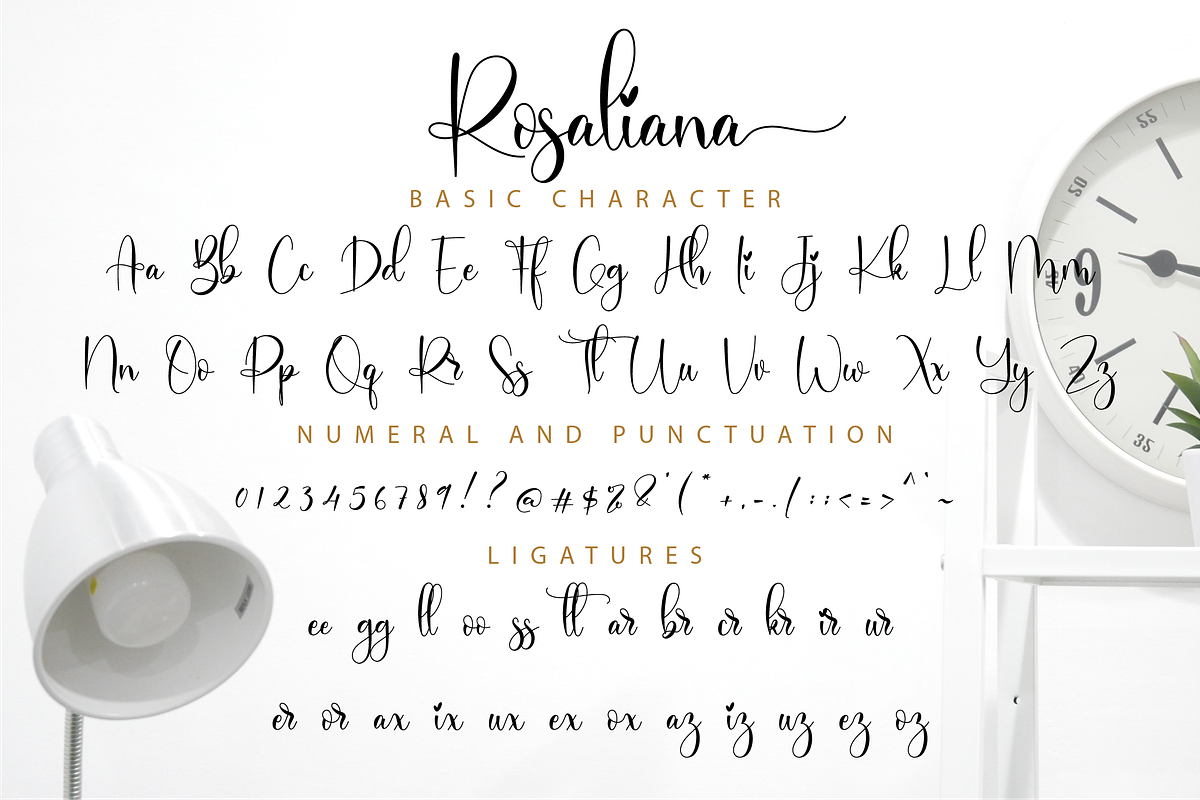 Rosaliana
BASIC CHARACTER
Aa Bb Cc Dd Ee Ff Gg Hh Ii Jj Kk Ll Mm
Nn Oo Pp Qq Rr Ss Tt Uu Vv Ww Xx Yy Zz
NUMERAL AND PUNCTUATION
0123456789!?@#$%&'(*+,-./:;<=>^`~
LIGATURES
ee gg ll oo ss tt ar br cr kr ir ur
er or ax ix ux ex ox az iz uz ez oz
55
50
9
45
40
35